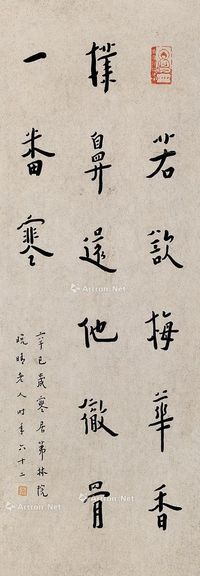 若欲梅華香
撲鼻還他徹骨
一番寒
辛巳歲寒居茀林院
晚晴老人時年六十二
Artron.Net